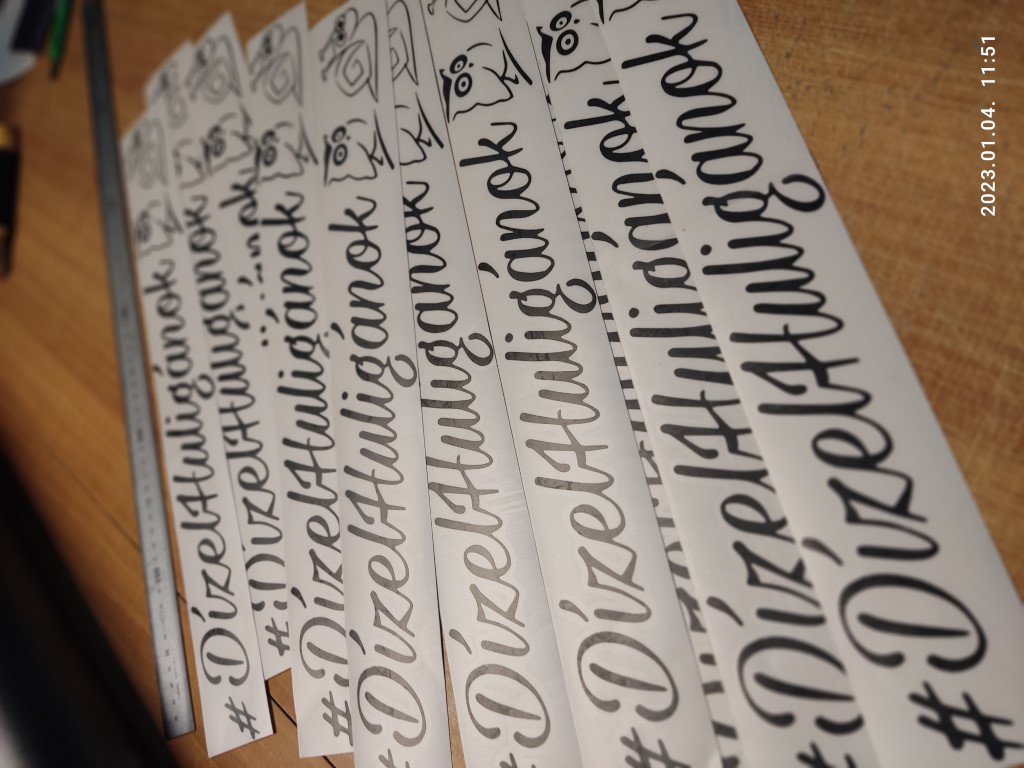 #DízelHuligánok
#DízelHuligánok
#DízelHuligánok
#DízelHuligánok
#DízelHuligánok
#DízelHuligánok
#DízelHuligánok
#DízelHuligánok
2023.01.04. 11:51